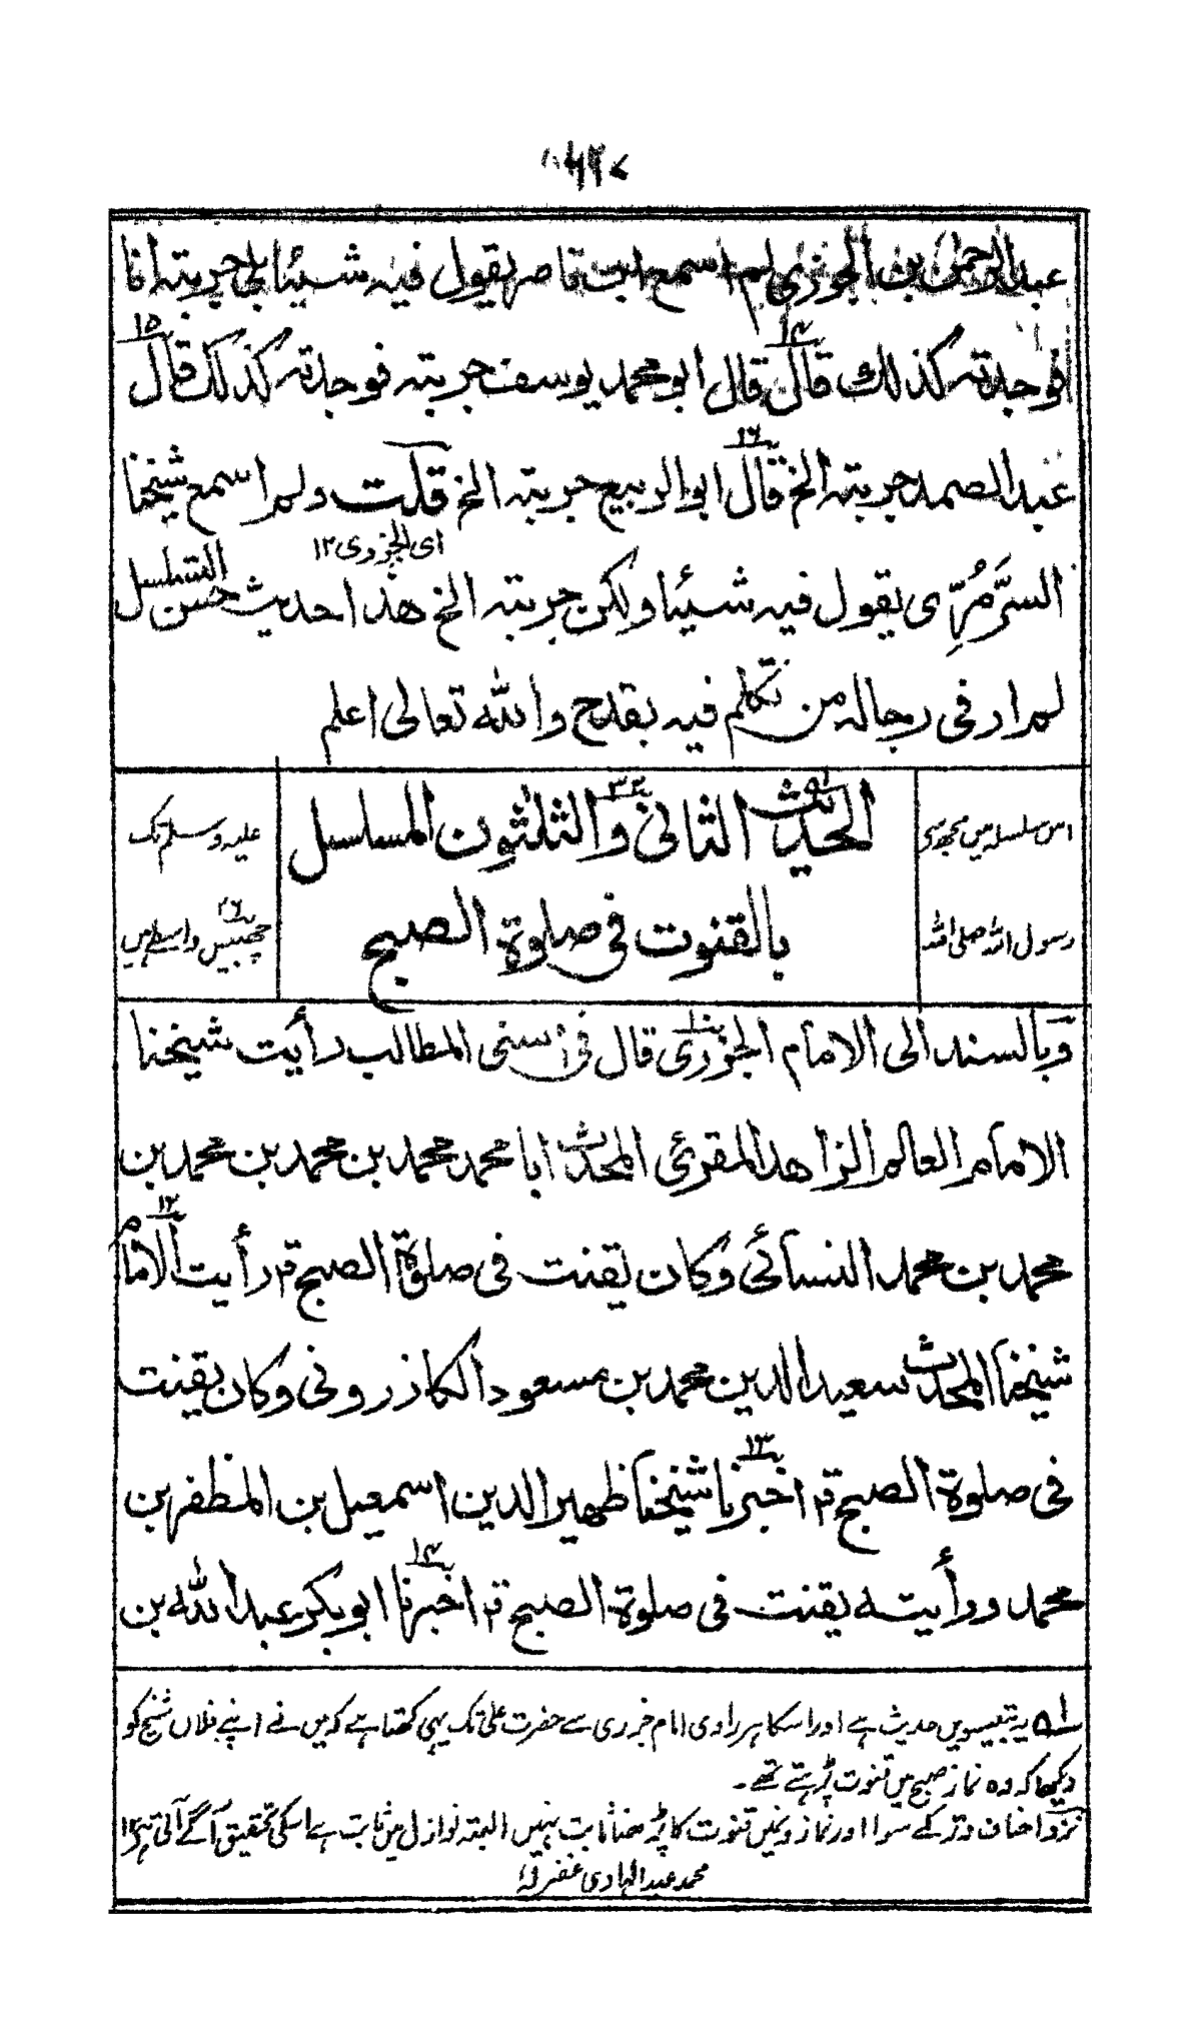 عبد الرحمٰن بن الجزری لم اسمع ابن ناصر یقول فیہ شیئا بلی جربتہ انا
فوجدتہ کذلك قال قال ابو محمد یوسف جربتہ فوجدتہ کذلك قال
۱۴ ۱۵
عبد الصمد جربتہ الخ قال ابو الربیع جربتہ الخ قلت ولم اسمع شیخنا
۱۶
ای الجزری ۱۲
السُّرَّمُرِّی یقول فیہ شیئا ولکن جربتہ الخ ھذا حدیث حسن التسلسل
لم ار فی رجالہ من تکلم فیہ بقدح واللہ تعالی اعلم
الحدیث الثانی والثلثون المسلسل
۵۱ ۳۲
بالقنوت فی صلوۃ الصبح
اس سلسلہ میں مجھ سے
رسول اللہ صلی اللہ
علیہ وسلم تک
۲۶
چھبیس واسطے ہیں
وبالسند الی الامام الجزری قال فی اسنی المطالب رأیت شیخنا
۱۰
الامام العالم الزاھد المقرئی المحدث ابا محمد محمد بن محمد بن محمد بن
محمد بن محمد النسائی وکان یقنت فی صلوۃ الصبح قال رأیت الامام
۱۲
شیخنا المحدث سعید الدین محمد بن مسعود الکازرونی وکان یقنت
فی صلوۃ الصبح اخبرنا شیخنا ظھیر الدین اسمعیل بن المظفر بن
۱۳
محمد ورأیتہ یقنت فی صلوۃ الصبح اخبرنا ابو بکر عبد اللہ بن
۱۴
یہ بتیسویں حدیث ہے اور اسکا ہر راوی امام جزری سے حضرت علی تک یہی کہتا ہے کہ میں نے اپنے فلاں شیخ کو
دیکھا کہ وہ نماز صبح میں قنوت پڑہتے تھے۔
نزد احناف وتر کے سوا اور نمازونمیں قنوت کا پڑھنا ثابت نہیں البتہ نوازل میں ثابت ہے اسکی تحقیق آگے آتی ہے ۱۲
محمد عبد الہادی غفرلہٗ